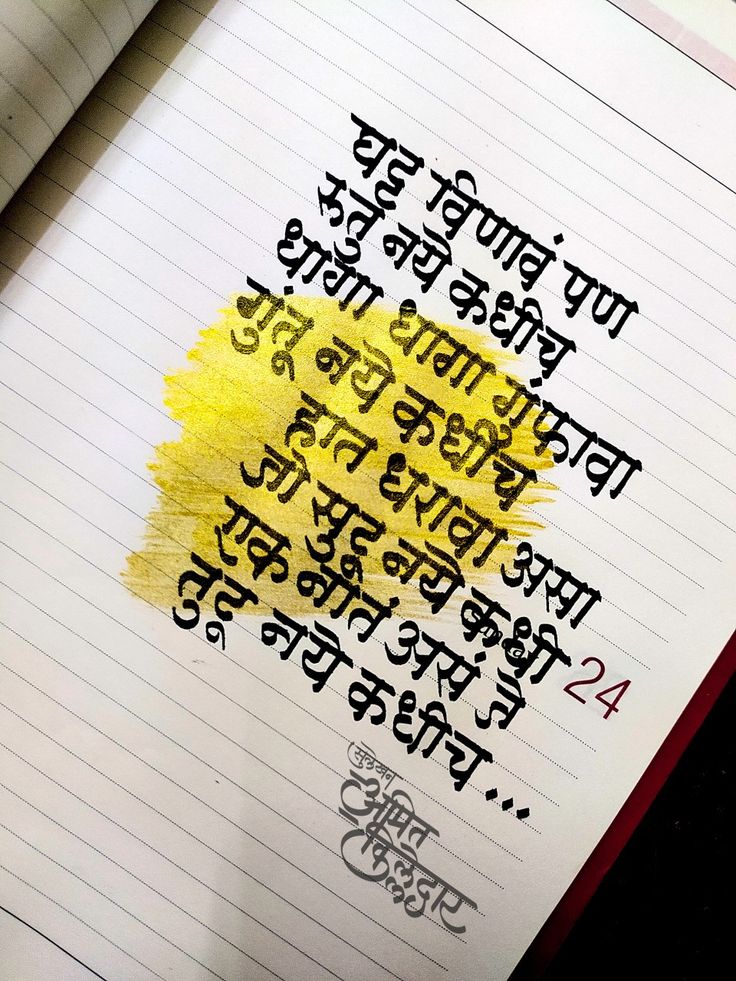 घट्ट विणावं पण
रुतु नये कधीच
धागा धागा गुंफावा
गुंतू नये कधीच
हात धरावा असा
जो सुटू नये कधी
एक नातं असं जे
तुटू नये कधीच ...
24
सुलेखन
अमित
किल्लेदार